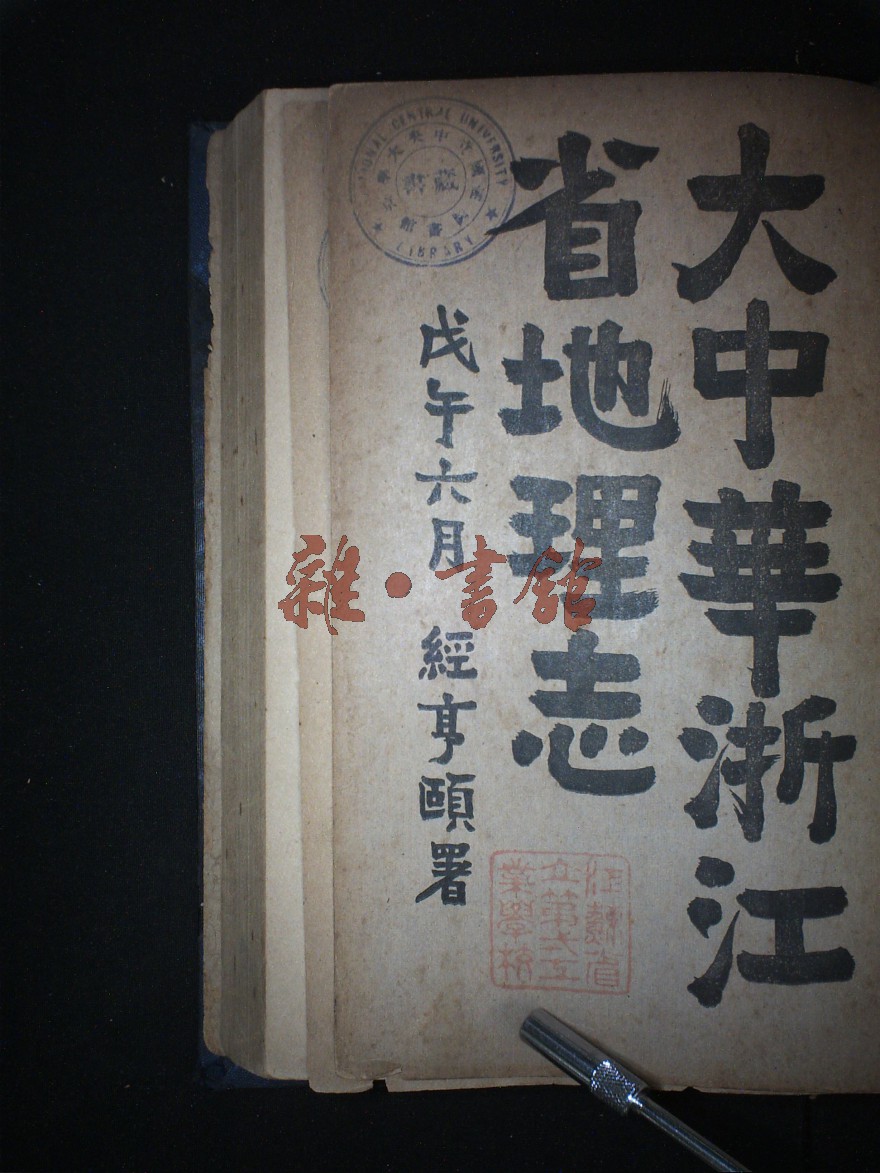 大中華浙江
省地理志
戊午六月 經亨頤署
NATIONAL CENTRAL UNIVERSITY
LIBRARY
國立中央大學
圖書館
藏書
江蘇省
立第二工
業學校
雜·書館